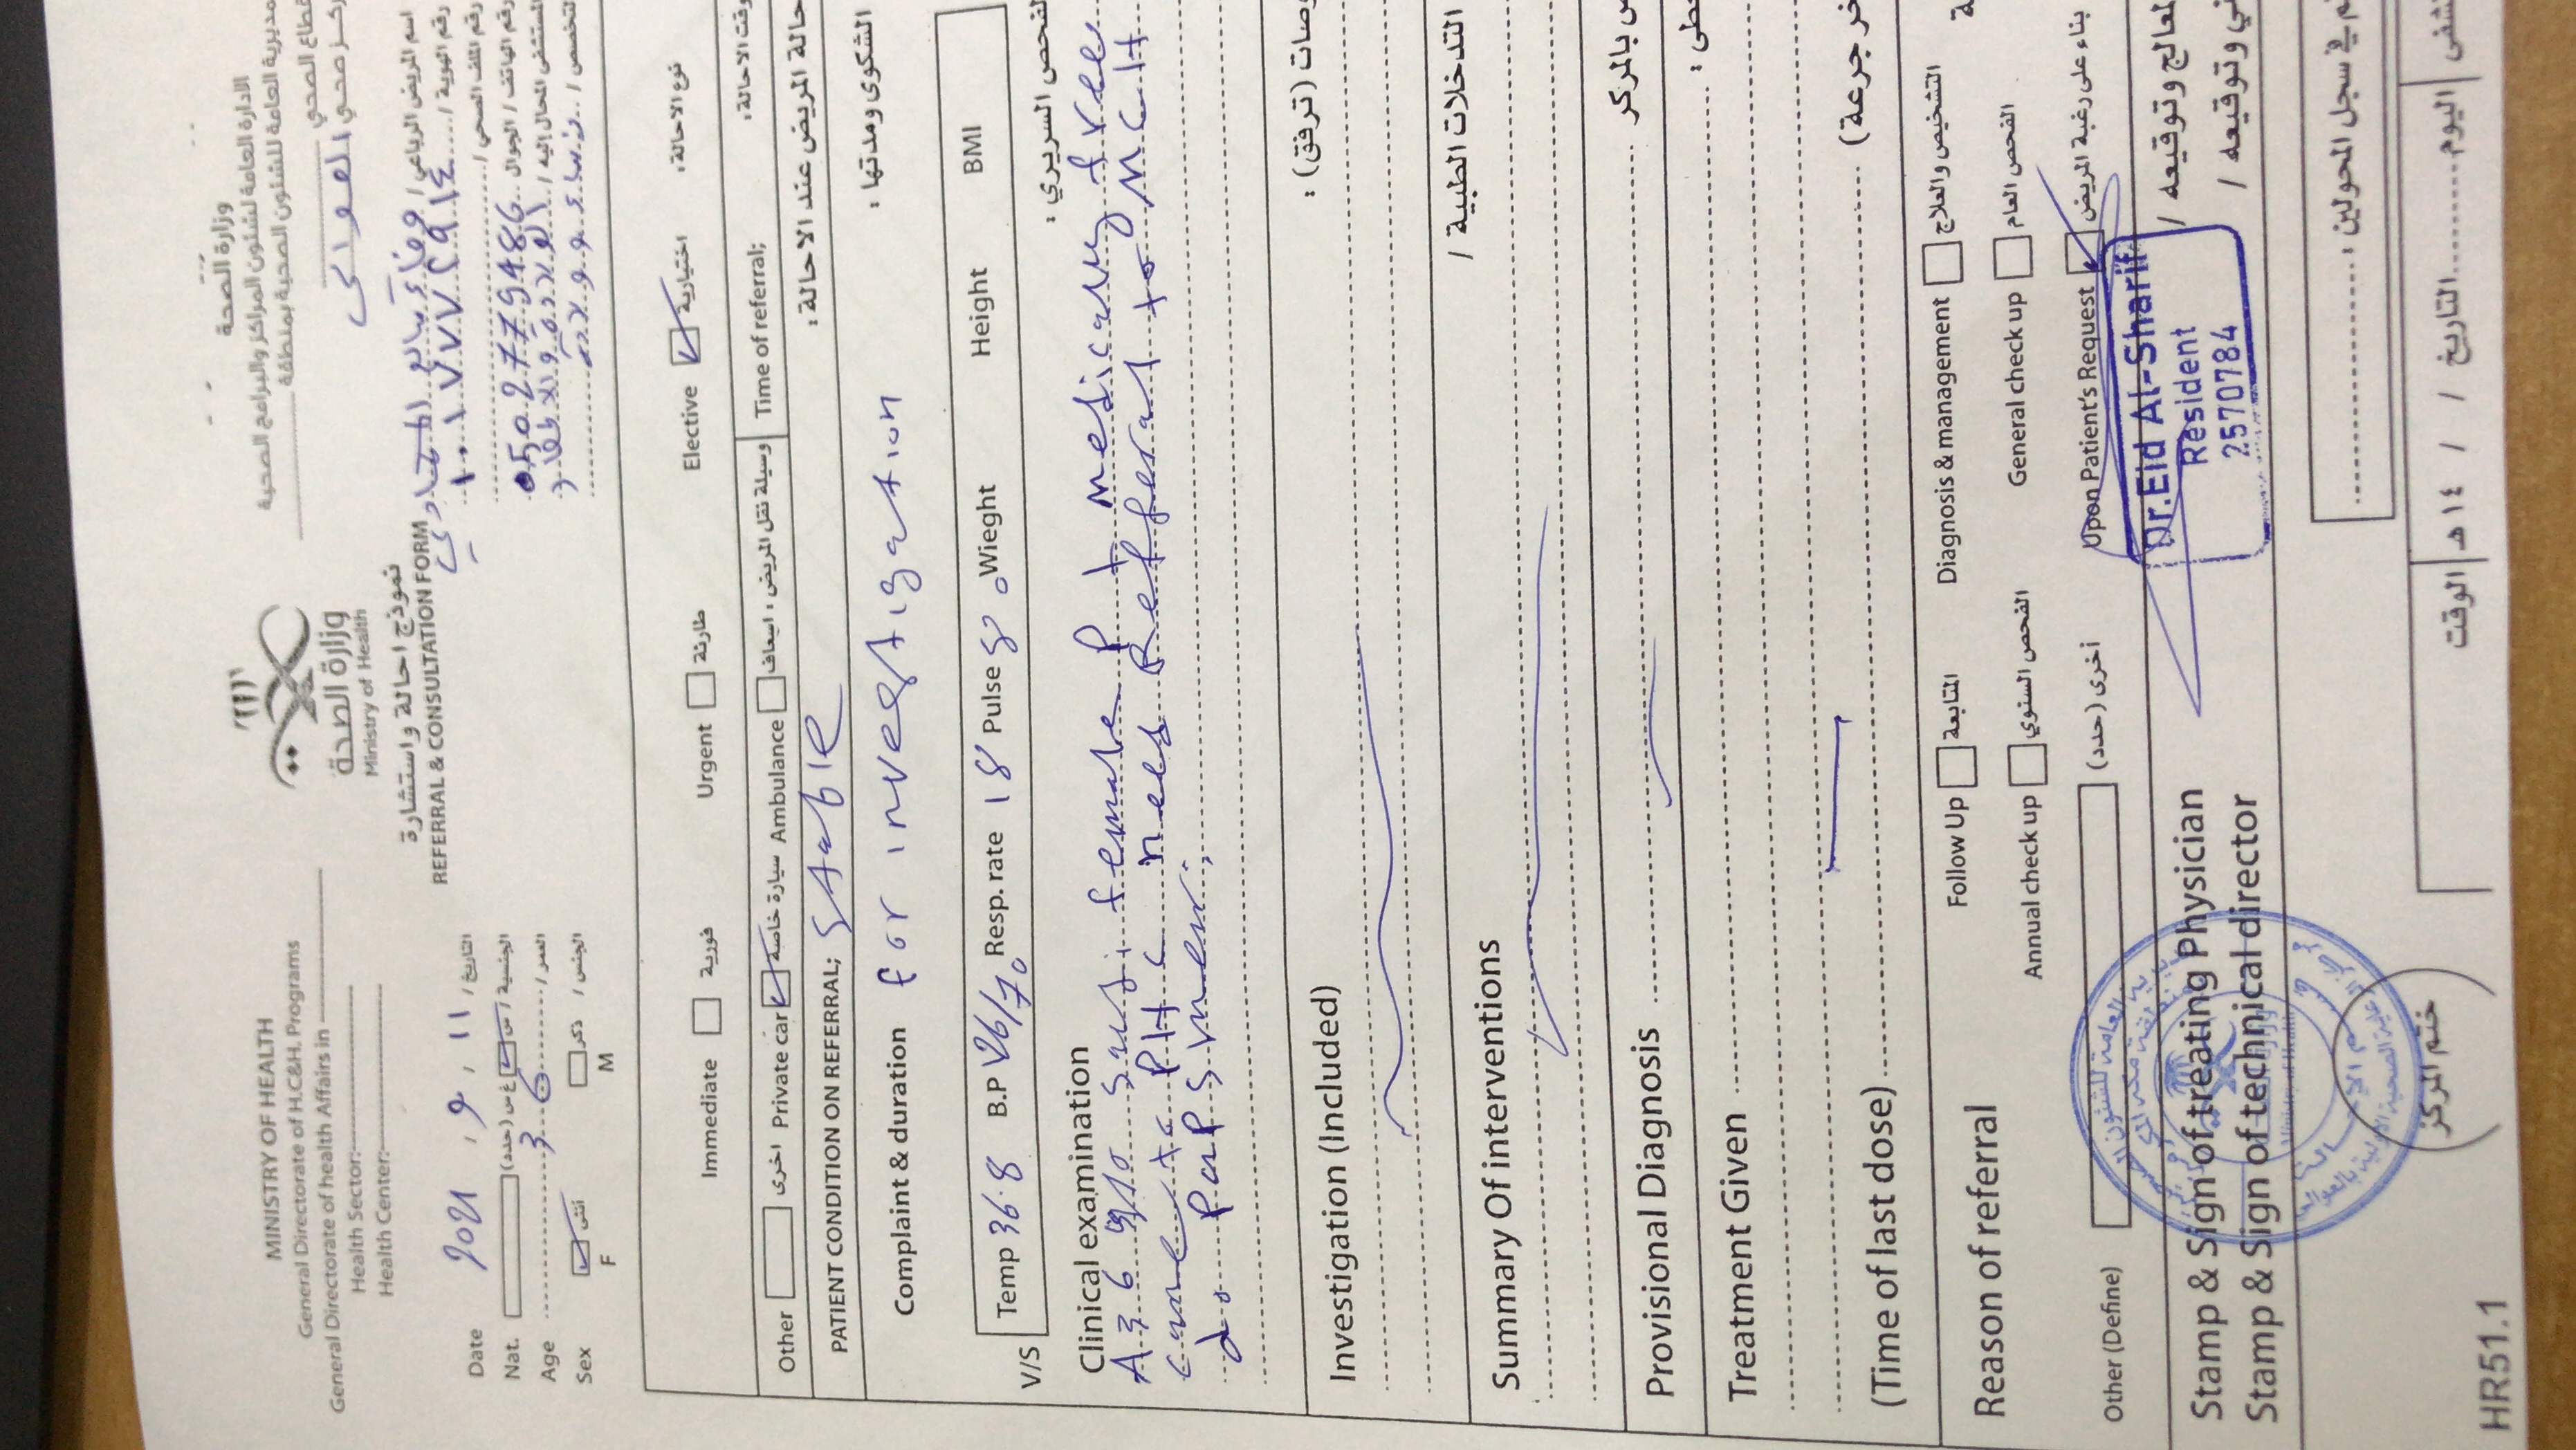 MINISTRY OF HEALTH
General Directorate of H.C&H. Programs
General Directorate of health Affairs in
Health Sector:
Health Center:
وزارة الصحة
Ministry of Health
نموذج احالة واستشارة
REFERRAL & CONSULTATION FORM
وزارة الصحة
الادارة العامة لشئون المراكز والبرامج الصحية
مديرية العامة للشئون الصحية بمنطقة
قطاع الصحي
ركز صحي العوالي
اسم المريض الرباعي / وفاء
رقم الهوية / ١٠١٧٧٧٢٩١٤
رقم الملف الصحي /
رقم الهاتف / الجوال 0502779486
المستشفى المحال إليه / الولادة والاطفال
التخصص / نساء وولادة
Date 2021 / 9 / 11 التاريخ /
Nat. الجنسية / س غ س (حدد)
Age 36 العمر /
Sex أنثى ذكر الجنس /
F M
Immediate فورية Urgent طارئة Elective اختيارية نوع الاحالة:
Other اخرى Private car سيارة خاصة Ambulance وسيلة نقل المريض : اسعاف Time of referral; وقت الاحالة:
PATIENT CONDITION ON REFERRAL; Stable حالة المريض عند الاحالة:
Complaint & duration for investigation الشكوى ومدتها :
V/S Temp 36.8 B.P 126/70 Resp. rate 18 Pulse 80 Wieght Height BMI
Clinical examination لفحص السريري :
A 36 y/o Saudi female Pt medically free
came to PHC need Refferal to MCH
do Papsmear;
Investigation (Included) وصات (ترفق) :
Summary Of interventions التدخلات الطبية /
Provisional Diagnosis ص بالمركز
Treatment Given عطى :
(Time of last dose) خر جرعة)
Reason of referral Follow Up المتابعة Diagnosis & management التشخيص والعلاج
Annual check up الفحص السنوي General check up الفحص العام
Other (Define) أخرى (حدد) Upon Patient's Request بناء على رغبة المريض
Stamp & Sign of treating Physician لمعالج وتوقيعه /
Stamp & Sign of technical director ني وتوقيعه /
Dr.Eid Al-Sharif
Resident
2570784
Ministry of Health
قسم الإحالة
مركز الرعاية الصحية الأولية بالعوالي
ختم المركز
م في سجل المحولين :
شفى اليوم التاريخ / / ١٤ هـ الوقت
HR51.1